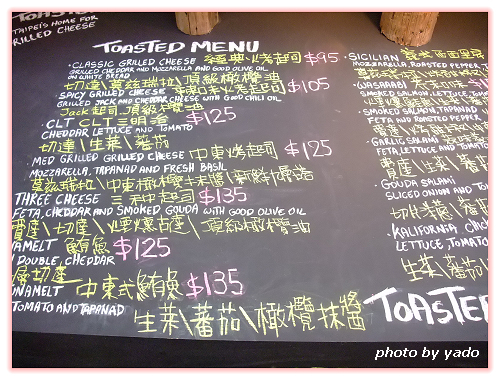 TOASTED
TAIPEI'S HOME FOR
GRILLED CHEESE
TOASTED MENU
·CLASSIC GRILLED CHEESE 經典火烤起司 $95
GRILLED CHEDDAR AND MOZZARELLA AND GOOD OLIVE OIL
ON WHITE BREAD
切達\莫茲瑞拉\頂級橄欖油
SPICY GRILLED CHEESE 起司 $105
GRILLED JACK AND CHEDDAR CHEESE WITH GOOD CHILI OIL
Jack起司
CLT CLT三明治 $125
CHEDDAR LETTUCE AND TOMATO
切達\生菜\蕃茄
·MED GRILLED GRILLED CHEESE 中東烤起司 $125
MOZZARELLA, TAPANAD AND FRESH BASIL
莫茲瑞拉\中東橄欖抹醬\新鮮
THREE CHEESE 三種起司 $135
FETA, CHEDDAR AND SMOKED GOUDA WITH GOOD OLIVE OIL
費達\切達\煙燻\頂級橄欖油
NAMELT 鮪魚 $125
DOUBLE, CHEDDAR
層切達
NAMELT 中東式鮪魚 $135
TOMATO AND TAPANAD
生菜\蕃茄\橄欖抹醬
·SICILIAN
MOZZARELLA, ROASTED PEPPER
·WASABABI
SMOKED SALMON, LETTUCE
SMOKED SALMON, TAPANAD
FETA AND ROASTED PEPPER
·GARLIC SALAMI
FETA, LETTUCE AND TOMATO
費達\生菜\蕃茄
·GOUDA SALAMI
SLICED ONION AND TOM
切片洋蔥\蕃
·KALIFORNIA CHICK
LETTUCE, TOMATO
生菜\蕃茄\
TOASTED
photo by yado